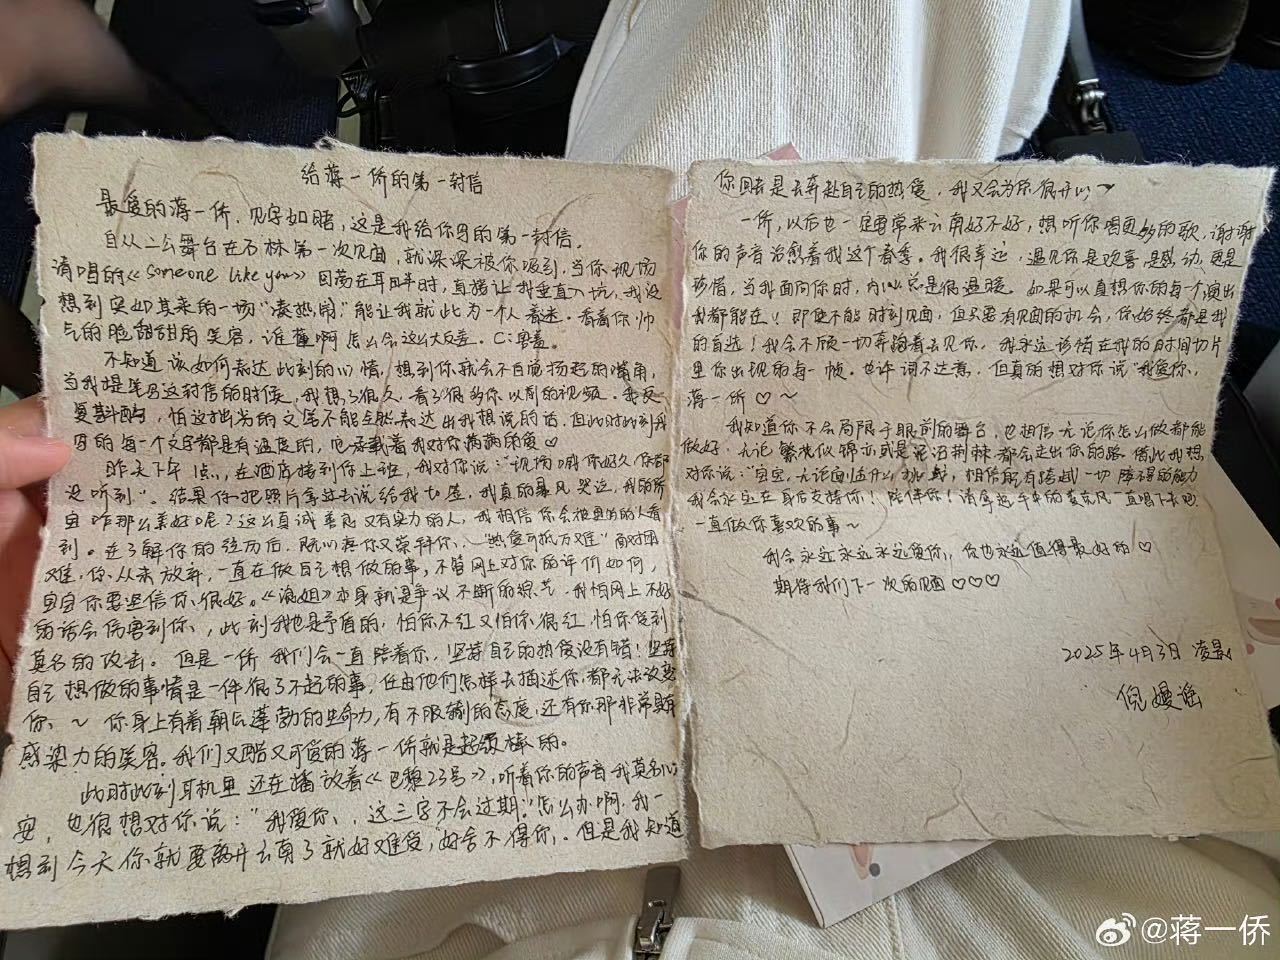 给蒋一侨的第一封信
最爱的蒋一侨,见字如晤,这是我给你写的第一封信。
自从二公舞台在石林第一次见面,就深深被你吸引,当你现场
清唱的《someone like you》回荡在耳畔时,直接让我垂直入坑,我没
想到突如其来的一场“凑热闹”能让我就此为一个人着迷。看着你帅
气的脸甜甜的笑容,谁懂啊怎么会这么大反差。C:
不知道该如何表达此刻的心情,想到你我就会不自觉扬起的嘴角,
当我提笔写这封信的时候,我想了很久,看了很多你以前的视频。我反
复斟酌,怕这拙劣的文笔不能全然表达出我想说的话,但此时此刻我
写的每一个文字都是有温度的,它承载着我对你满满的爱♡
昨天下午1点,在酒店接到你上班,我对你说:“现场喊你好久你都
没听到”。结果你把照片拿过去说给我to签,我真的暴风哭泣,我的所
宜咋那么美好呢?这么真诚善良又有实力的人,我相信你会被更多的人看
到。在了解你的经历后,既心疼你又崇拜你、“热爱可抵万难”面对困
难,你从未放弃,一直在做自己想做的事,不管网上对你的评价如何,
宜宜你要坚信你很好。《浪姐》本身就是争议不断的综艺,我怕网上不好
的话会伤害到你,此刻我也是矛盾的,怕你不红又怕你很红,怕你受到
莫名的攻击。但是一侨我们会一直陪着你,坚持自己的热爱没有错!坚持
自己想做的事情是一件很了不起的事,任由他们怎样去描述你,都无法改变
你、~ 你身上有着朝气蓬勃的生命力,有不服输的态度,还有你那非常具有
感染力的笑容。我们又酷又可爱的蒋一侨就是超级棒的。
此时此刻耳机里还在播放着《巴黎23号》,听着你的声音我莫名心
安,也很想对你说:“我爱你、,这三字不会过期。”怎么办啊,我一
想到今天你就要离开云南了就好难受,好舍不得你,。但是我知道
你回去是去奔赴自己的热爱,我又会为你很开心~
一侨,以后也一定要常来云南好不好,想听你唱更多的歌,谢谢
你的声音治愈着我这个春季。我很幸运,遇见你是欢喜是感动,更是
珍惜,当我面向你时,内心总是很温暖。如果可以真想你的每个演出
我都能在!即使不能时刻见面,但只要有见面的机会,你始终都是我
的首选!我会不顾一切奔跑着去见你,我永远珍惜在我的时间切片
里你出现的每一帧。也许词不达意,但真的想对你说“我爱你,
蒋一侨♡~
我知道你不会局限于眼前的舞台,也相信无论你怎么做都能
做好,无论繁花似锦亦或是泥沼荆棘都会走出你的路。借此我想
对你说:“宜宜,无论面临什么挑战,相信你有跨越一切障碍的能力
我会永远在身后支持你!陪伴你!请拿起手中的麦克风一直唱下去吧
一直做你喜欢的事~
我会永远永远永远爱你,,你也永远值得最好的♡
期待我们下一次的见面♡♡♡
2025年4月3日 凌晨
倪嫚谣
@蒋一侨